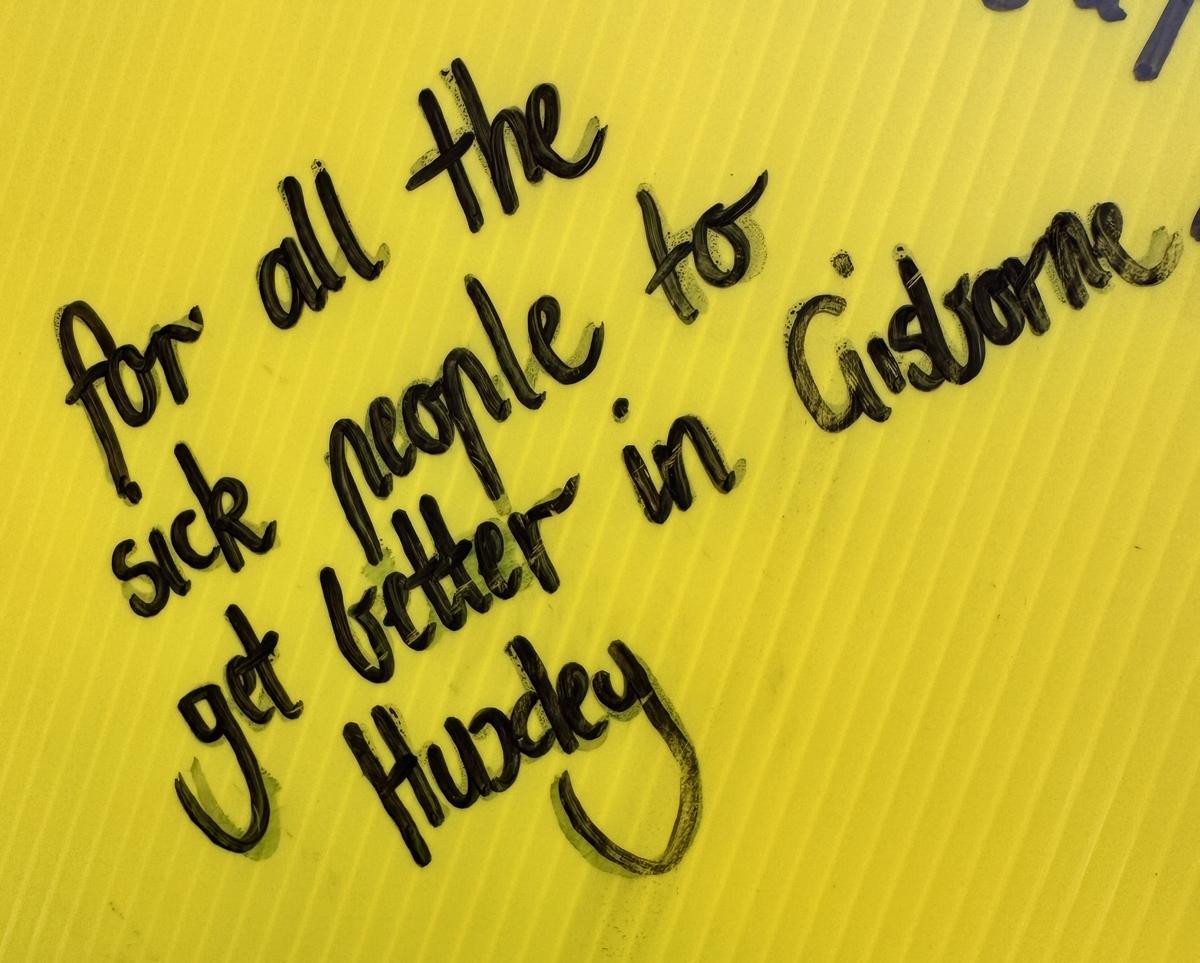 for all the
sick people to
get better in Gisborne.
Huxley